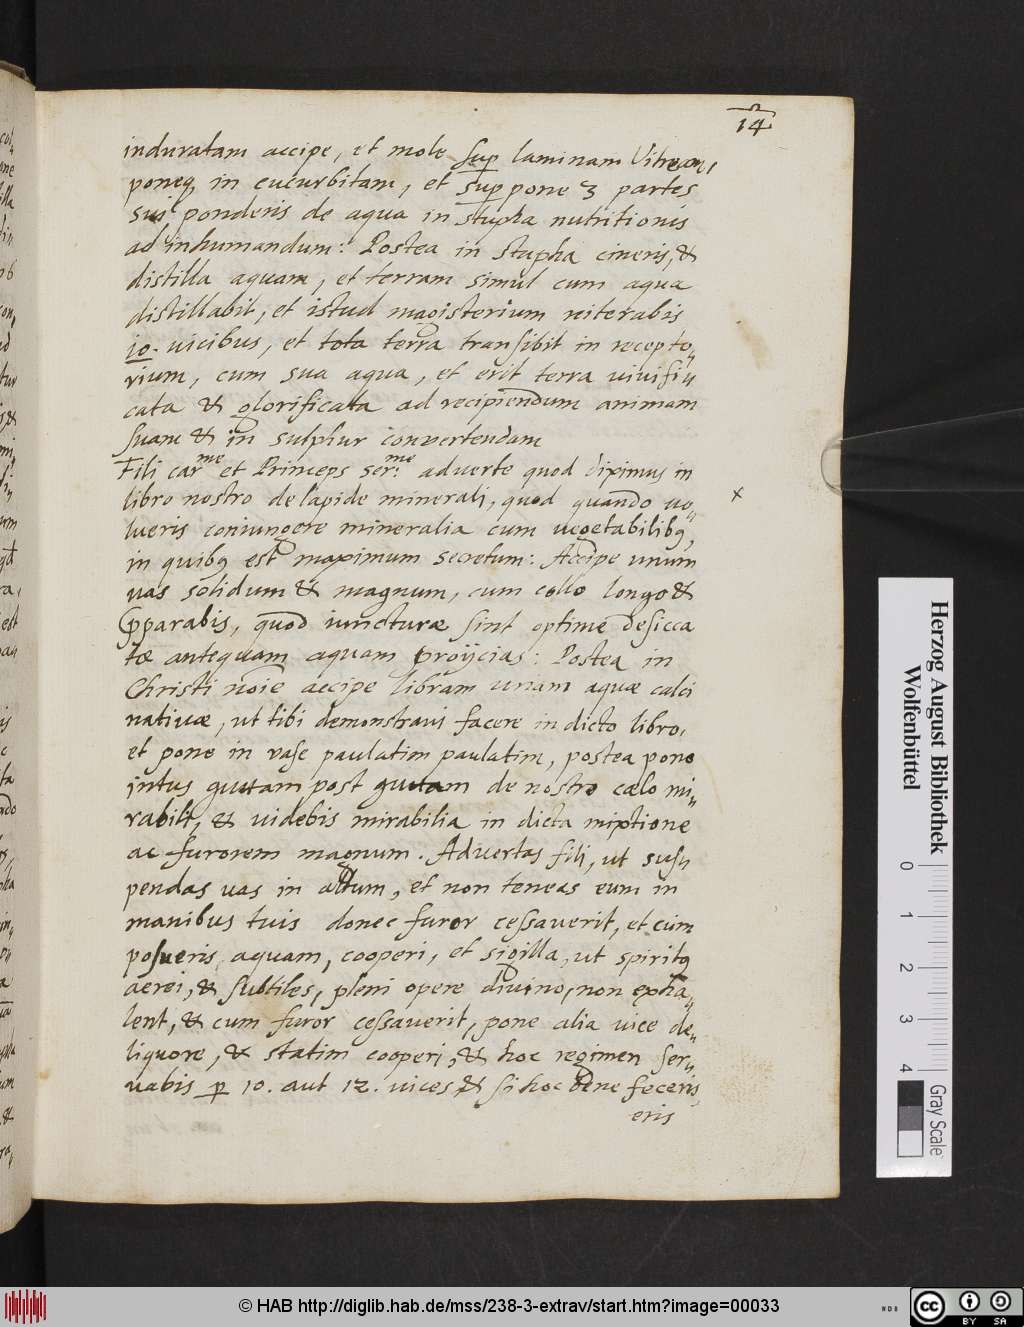 14
induratam accipe, et mole sup laminam Vitream,
poneq, in cucurbitam, et suppone 3 partes
sui ponderis de aqua in stupha nutritionis
ad inhumandum: Postea in stupha cineris, &
distilla aquam, et terram simul cum aqua
distillabit, et istud magisterium reiterabis
10. uicibus, et tota terra transibit in recepto„
rium, cum sua aqua, et erit terra uiuifi„
cata & glorificata ad recipiendum animam
suam & in sulphur conuertendam
Fili carme et Princeps ser:me aduerte quod diximus in
libro nostro de lapide minerali, quod quando uo„
lueris coniungere mineralia cum uegetabilibq,
in quibq est maximum secretum: Accipe unum
uas solidum & magnum, cum collo longo &
pparabis, quod iuncturæ sint optime desicca
tæ antequam aquam proijcias: Postea in
Christi noie accipe libram unam aquæ calci
natiuæ, ut tibi demonstraui facere in dicto libro,
et pone in uase paulatim paulatim, postea pone
intus guttam post guttam de nostro cælo mi„
rabili, & uidebis mirabilia in dicta mixtione
ac furorem magnum. Aduertas fili, ut sus„
pendas uas in altum, et non teneas eum in
manibus tuis donec furor cessauerit, et cum
posueris aquam, cooperi, et sigilla, ut spiritq
aerei, & subtiles, pleni opere diuino, non exha„
lent, & cum furor cessauerit, pone alia uice de„
liquore, & statim cooperi, & hoc regimen ser„
uabis p 10. aut 12. uices & si hoc bene feceris
eris
x
Herzog August Bibliothek
Wolfenbüttel
0 1 2 3 4
Gray Scale
© HAB http://diglib.hab.de/mss/238-3-extrav/start.htm?image=00033
cc BY SA